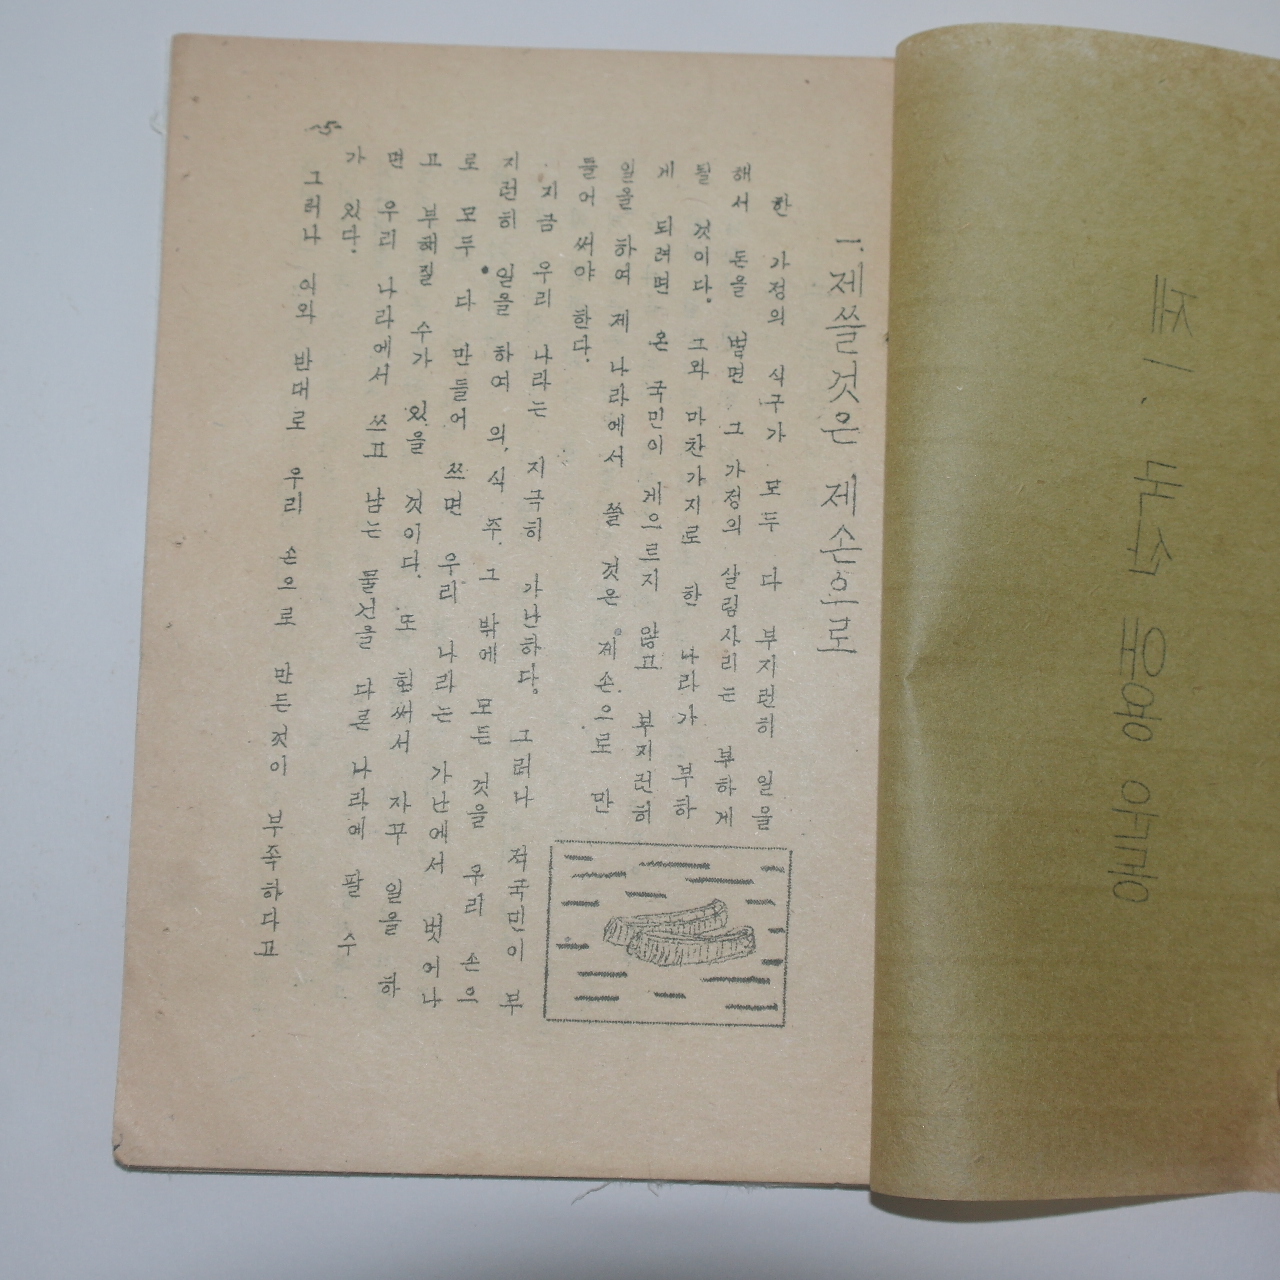 제 1.
一. 제쓸것은 제손으로
한 가정의 식구가 모두 다 부지런히 일을
해서 돈을 벌면 그 가정의 살림사리는 부하게
될 것이다. 그와 마찬가지로 한 나라가 부하
게 되려면 온 국민이 게으르지 않고 부지런히
일을 하여 제 나라에서 쓸 것은 제손으로 만
들어 써야 한다.
지금 우리 나라는 지극히 가난하다. 그러나 전국민이 부
지런히 일을 하여 의.식 주. 그 밖에 모든 것을 우리 손으
로 모두 다 만들어 쓰면 우리 나라는 가난에서 벗어나
고 부해질 수가 있을 것이다. 또 힘써서 자꾸 일을 하
면 우리 나라에서 쓰고 남는 물건을 다른 나라에 팔 수
가 있다.
그러나 이와 반대로 우리 손으로 만든것이 부족하다고
-5-